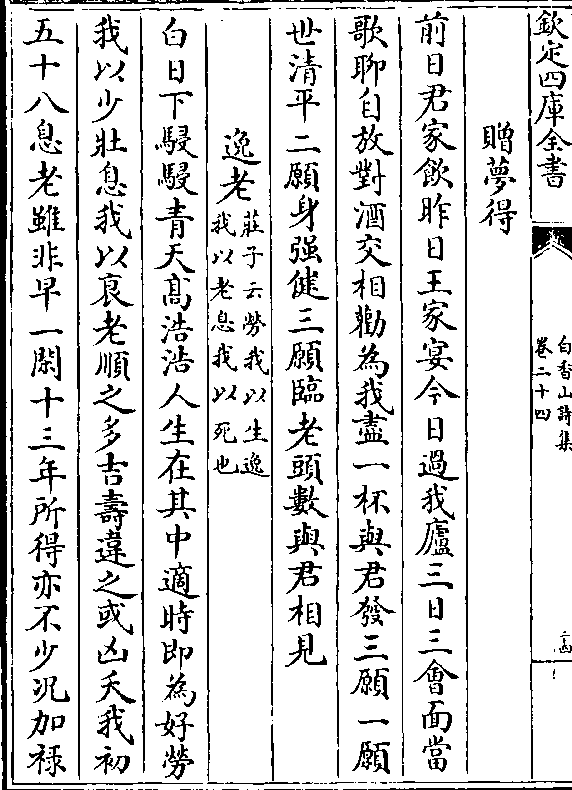 欽定四庫全書
白香山詩集
卷二十四
贈夢得
前日君家飲昨日王家宴今日過我廬三日三會面當
歌聊自放對酒交相勸為我盡一杯與君發三願一願
世清平二願身强健三願臨老頭數與君相見
逸老莊子云勞我以生逸
我以老息我以死也
白日下駸駸青天髙浩浩人生在其中適時即為好勞
我以少壯息我以衰老順之多吉壽違之或凶夭我初
五十八息老雖非早一閑十三年所得亦不少况加祿